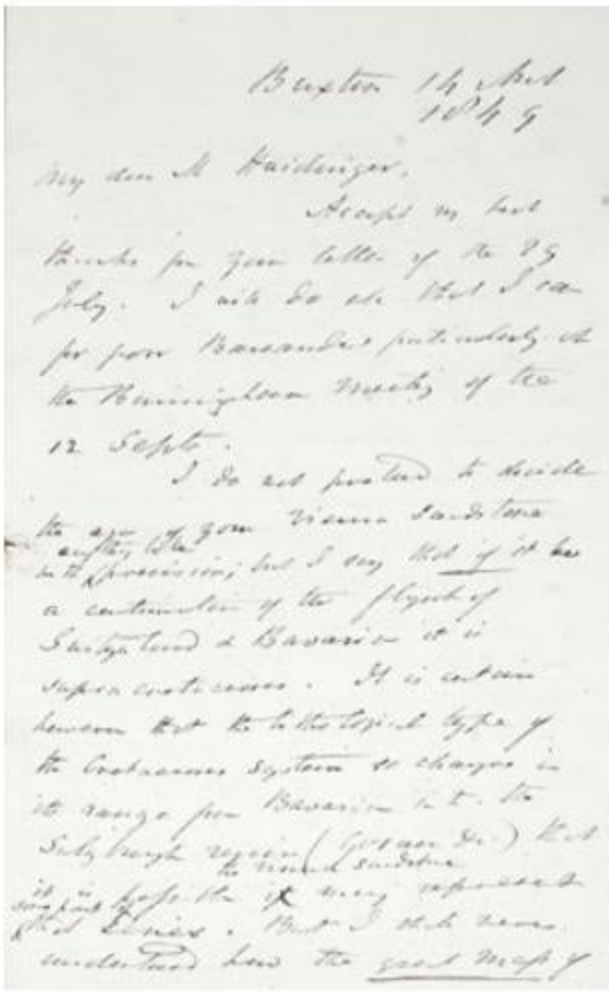 Buxton 14 Augt
1849
My dear M Haidinger,
Accept my best
thanks for your letter of the 29
July. I will do all that I can
for poor Barrande particularly at
the Birmingham Meeting of the
12 Septr.
I do not pretend to decide
the age of your Vienna Sandstone
with precision; but I say that if it be
a continuation of the flysch of
Switzerland & Bavaria it is
supra cretaceous. It is certain
however that the lithological type of
the Cretaceous System so changes in
its range from Bavaria into the
Salzburgh region (Gosau &c.) that
the Vienna sandstone
it is possible may represent
some part of
that series. But I shall never
understand how the great mass of